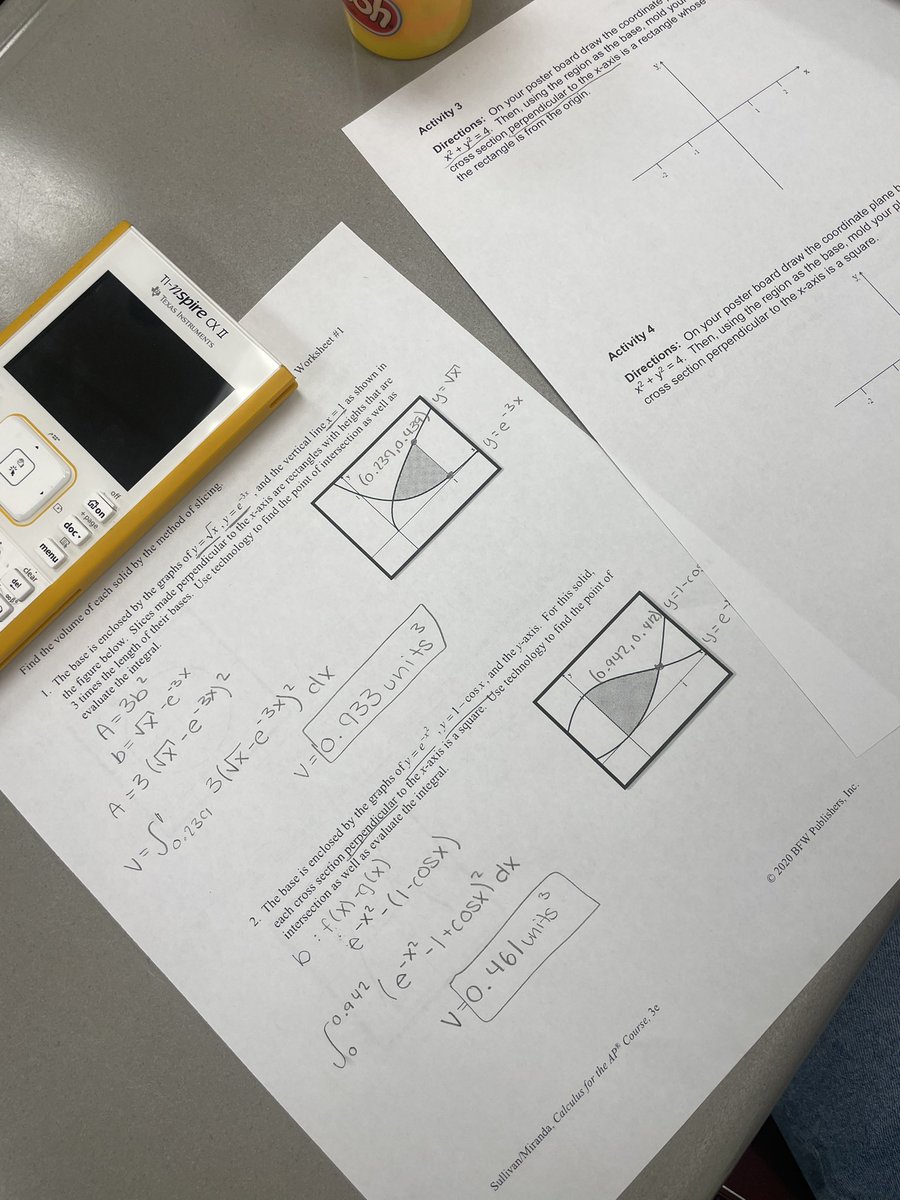 sh
Activity 3
Directions: On your poster board draw the coordinate
x² + y² = 4. Then, using the region as the base, mold your
cross section perpendicular to the x-axis is a rectangle whose
the rectangle is from the origin.
y
x
-2
-1
1
2
Activity 4
Directions: On your poster board draw the coordinate plane
x² + y² = 4. Then, using the region as the base, mold your
cross section perpendicular to the x-axis is a square.
y
-2
TI-nspire CX II
TEXAS INSTRUMENTS
off
on
+page
doc
menu
clear
del
Worksheet #1
Find the volume of each solid by the method of slicing.
1. The base is enclosed by the graphs of y = √x, y = e⁻³ˣ, and the vertical line x = 1 as shown in
the figure below. Slices made perpendicular to the x-axis are rectangles with heights that are
3 times the length of their bases. Use technology to find the point of intersection as well as
evaluate the integral.
A = 3b²
b = √x - e⁻³ˣ
A = 3(√x - e⁻³ˣ)²
V = ∫₀.₂₃₉¹ 3(√x - e⁻³ˣ)² dx
V = 0.933 units³
(0.239, 0.439)
y = √x
y = e⁻³ˣ
1
2. The base is enclosed by the graphs of y = e^-x², y = 1 − cos x, and the y-axis. For this solid,
each cross section perpendicular to the x-axis is a square. Use technology to find the point of
intersection as well as evaluate the integral.
b: f(x) - g(x)
e^-x² - (1 - cosx)
∫₀^0.942 (e^-x² - 1 + cosx)² dx
V = 0.461 units³
(0.942, 0.412)
y = 1 - cos
y = e⁻
1
Sullivan/Miranda, Calculus for the AP® Course, 3e
© 2020 BFW Publishers, Inc.